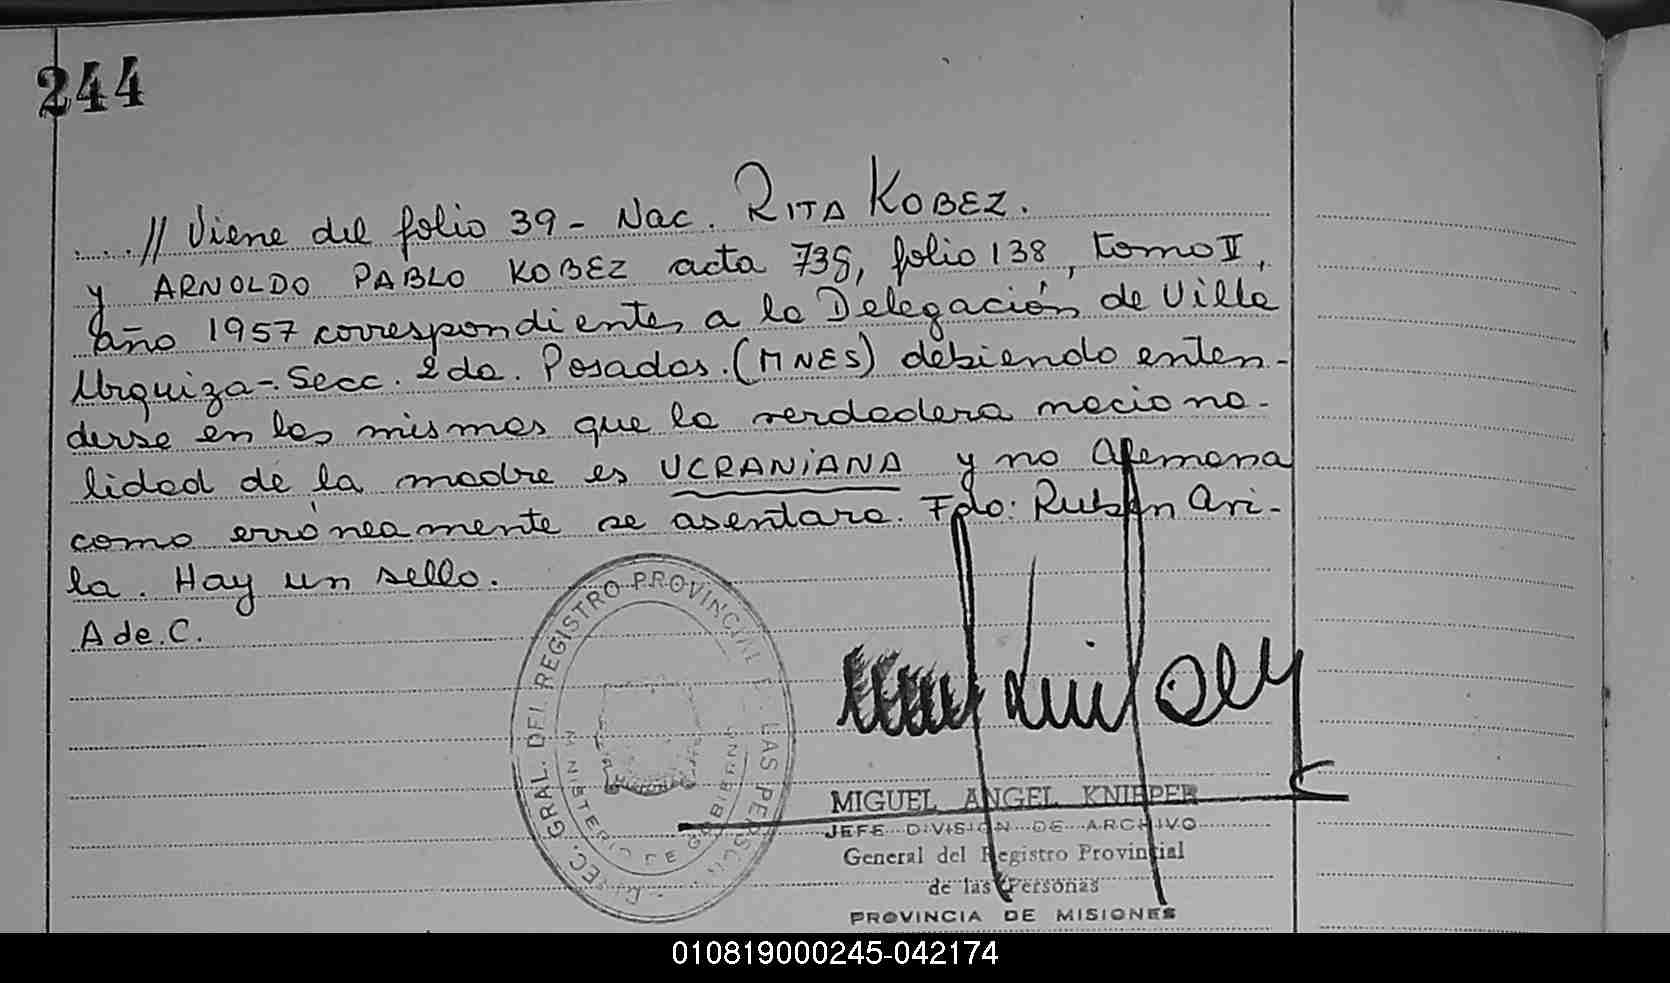 244
....// Viene del folio 39 - Nac. RITA KOBEZ.
y ARNOLDO PABLO KOBEZ acta 738, folio 138, tomo II,
año 1957 correspondientes a la Delegación de Villa
Urquiza-. Secc. 2da. Posadas. (MNES) debiendo enten-
derse en las mismas que la verdadera naciona-
lidad de la madre es UCRANIANA y no Alemana
como erróneamente se asentara. Fdo: Ruben Ari-
la. Hay un sello.
A de.C.
SEC. GRAL. DEL REGISTRO PROVINCIAL DE LAS PERSONAS
MINISTERIO DE GOBIERNO
MIGUEL ANGEL KNIEPER
JEFE DIVISION DE ARCHIVO
General del Registro Provincial
de las Personas
PROVINCIA DE MISIONES
010819000245-042174